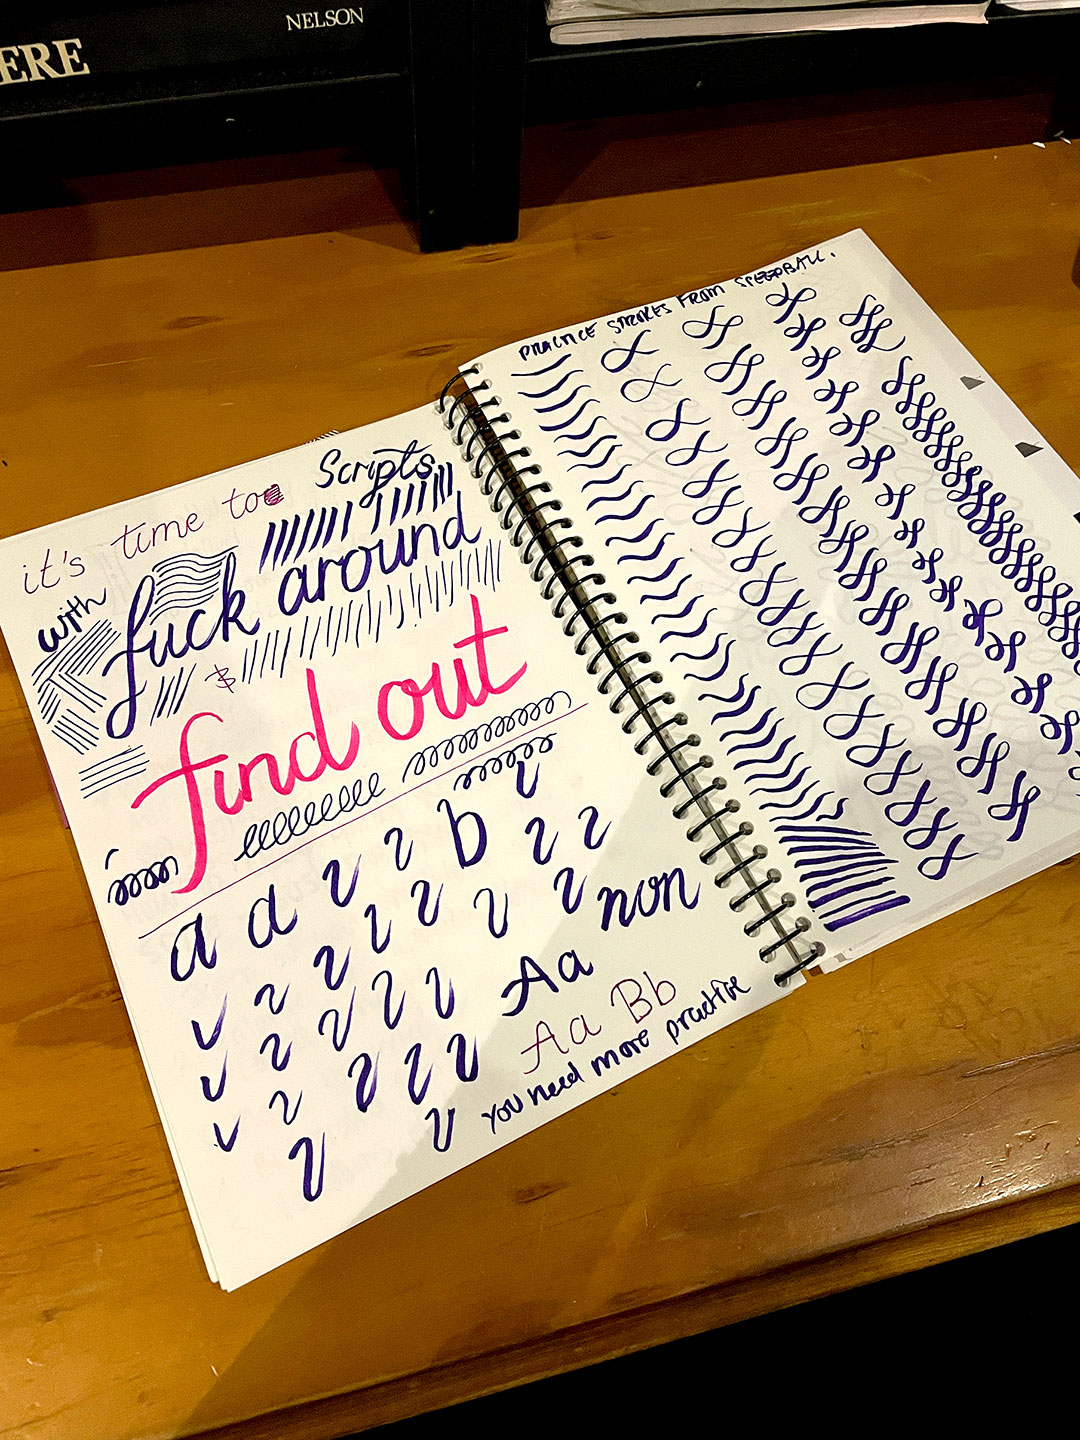 ERE
NELSON
PRACTICE STROKES FROM SPEEDBALL.
it's time to
Scripts
with
fuck around
$
find out
a d b
non
Aa
Aa Bb
you need more practice